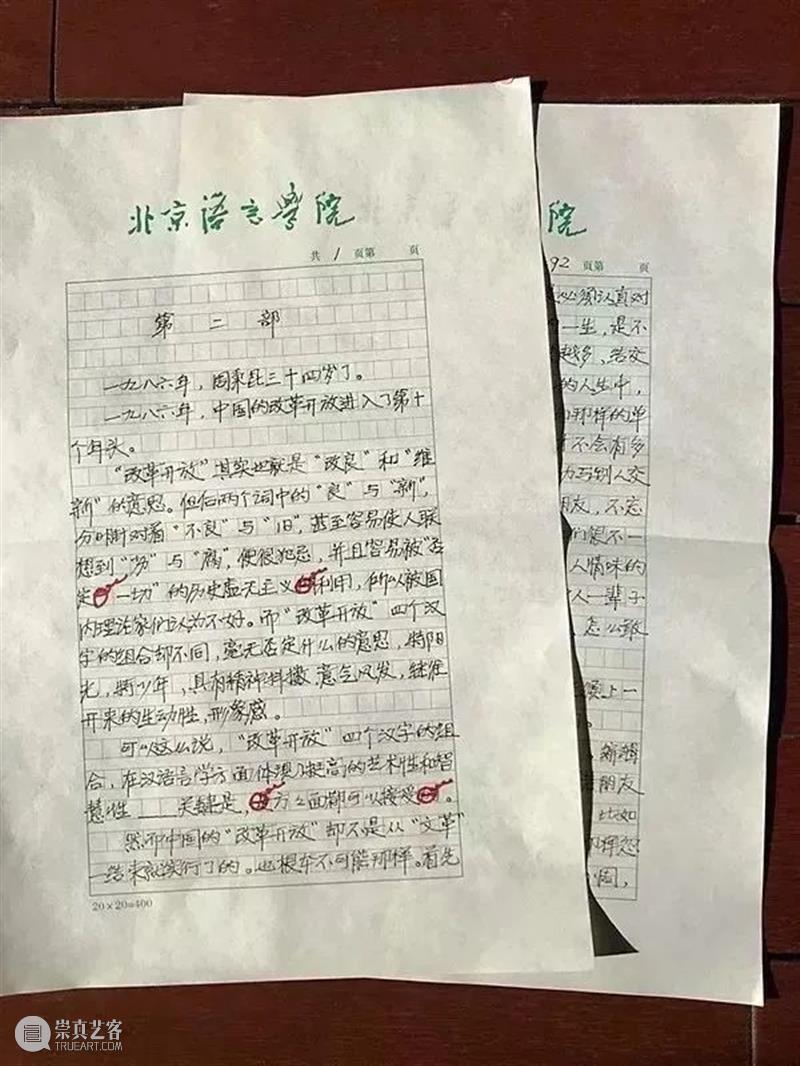 北京语言学院
共 1 页第 页
第二部
一九八六年，周秉昆三十四岁了。
一九八六年，中国的改革开放进入了第十
个年头。
“改革开放”其实也就是“改良”和“维
新”的意思。但后两个词中的“良”与“新”，
分明针对着“不良”与“旧”，甚至容易使人联
想到“劣”与“腐”，便很犯忌，并且容易被“否
定一切”的历史虚无主义利用，所以被国
内理论家们认为不好。而“改革开放”四个汉
字的组合却不同，毫无否定什么的意思，特阳
光，特少年，具有精神抖擞、意气风发，继往
开来的生动性，形象感。
可以这么说，“改革开放”四个汉字的组
合，在汉语言学方面体现了挺高的艺术性和智
慧性——关键是，方方面面都可以接受。
然而中国的“改革开放”却不是从“文革”
一结束就实行了的。也根本不可能那样。首先
20×20=400
院
92 页第 页
必须认真对
一生，是不
越多，结交
的人生中，
那样的单
不会有多
为与别人交
朋友，不忘
们恨不一
人情味的
人一辈子
怎么敢
上一
朋友
比如
崇真艺客
TRUEART.COM